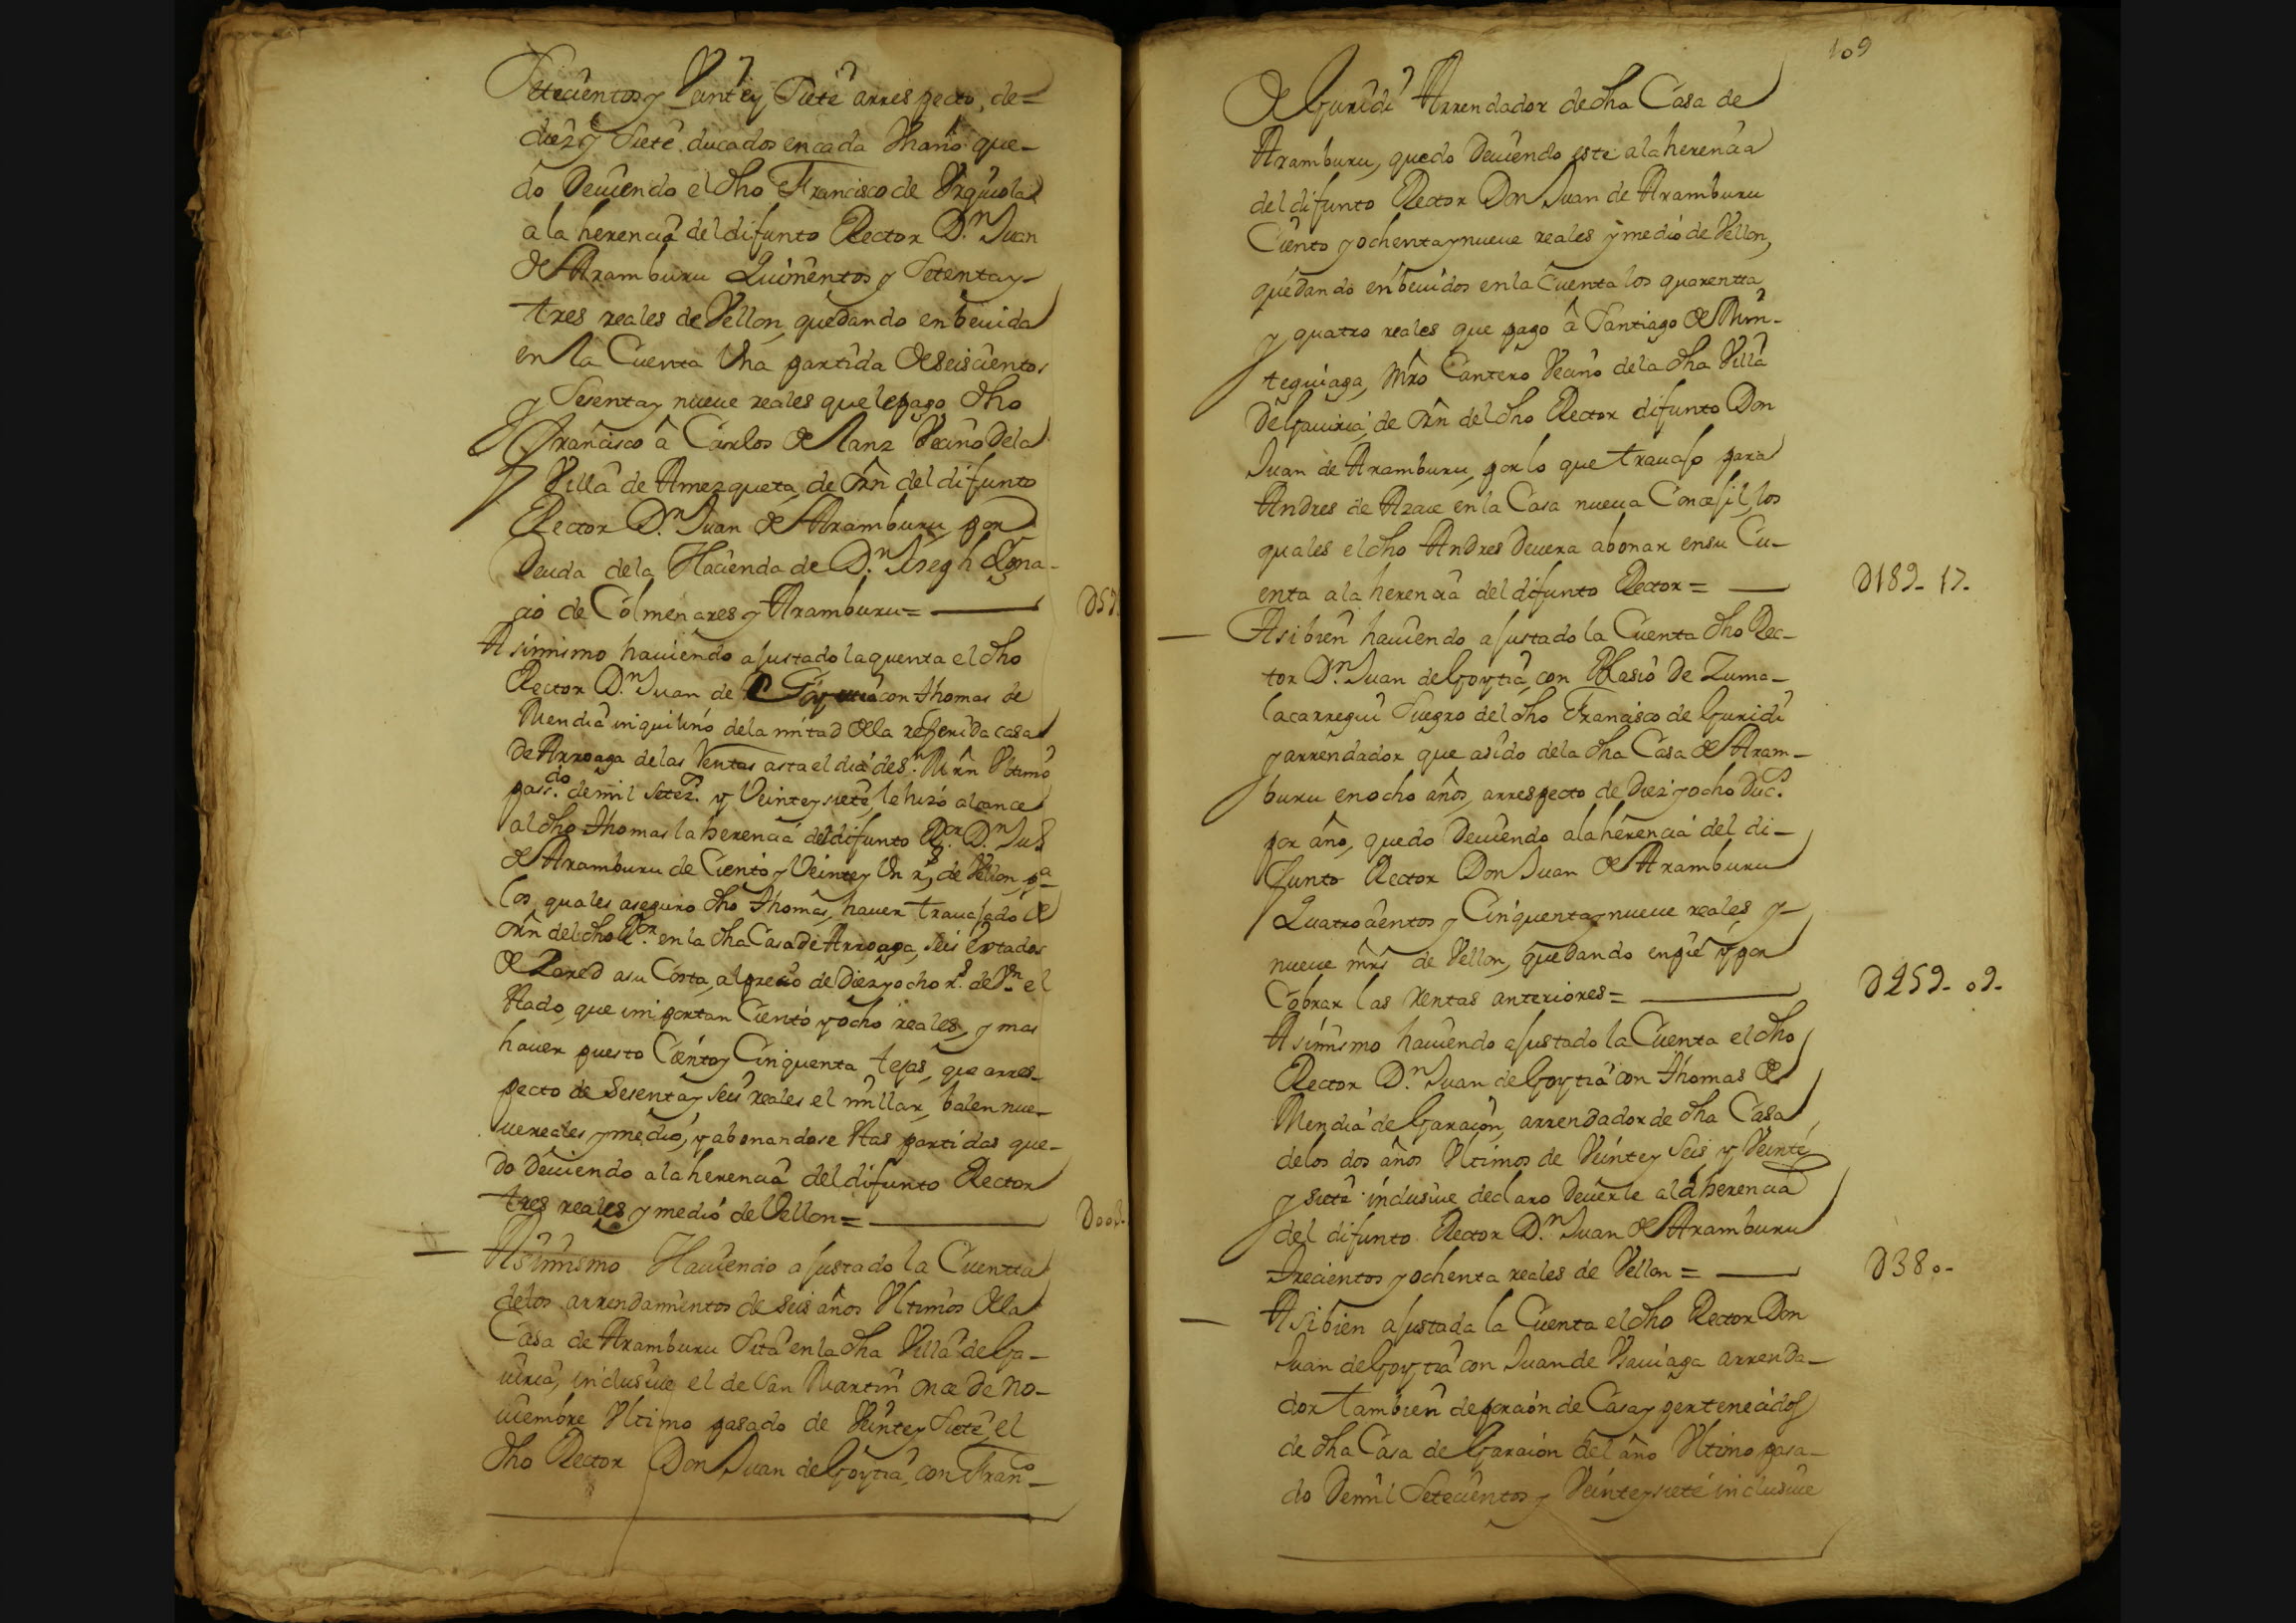 Setecientos y Veinte y Siete arrespecto, de=
diez y Siete ducados en cada Vn año que-
do Deuiendo el dho Francisco de Vrquiola
a la herencia del difunto Rector D.n Juan
de Aramburu Quinientos y Setenta y
tres reales de Vellon, quedando enbeuida
en la Cuenta Vna partida de seiscientos
y Sesenta y nueue reales que le pago dho
Francisco â Carlos de Lanz Vecino Dela
Villa de Amezqueta, de Orn del difunto
Rector D.n Juan de Aramburu, por
Deuda dela Hacienda de D.n Joseph Igna-
cio de Colmenares y Aramburu=
D57
Asimismo hauiendo ajustado la quenta el dho
Rector D.n Juan de Goytia con Thomas de
Mendia inquilino dela mitad de la referida casa
De Arroaga de las Ventas asta el dia de S.n Mrn Vltimo
pass.do de mil setez.s y Veinte y siete, le hizo alcance
al dho Thomas la herencia del difunto R.or D.n Ju.o
de Aramburu de Ciento y Veinte y Vn r.s de Vellon, p.a
los quales aseguro dho Thomas, hauer trauajado de
Orn del dho R.or en la dha Casa De Arroaga, seis Estados
de Pared a su Costa, al precio de Diez y ocho r.s de V.n el
stado, que importan Ciento y ocho reales, y mas
hauer puesto Ciento y Cinquenta tejas, que arres-
pecto de Sesenta y Seis reales el millar, balen nue-
ue reales y medio, y abonandose stas partidas que-
do deuiendo a la herencia del difunto Rector
tres reales y medio de Vellon=
D003-
Asimismo Hauiendo ajustado la Cuentta
delos arrendamientos de seis años Vltimos de la
Casa de Aramburu Sita en la dha Villa de Ga-
uiria, inclusiue el de San Martin once de no-
uiembre Vltimo pasado de Veinte y Siete, el
dho Rector Don Juan de Goytia, con Fran.co
109
de Guridi Arrendador de dha Casa de
Aramburu, quedo Deuiendo este a la herencia
del difunto Rector Don Juan de Aramburu
Ciento y ochenta y nueue reales y medio de Vellon,
quedando enbeuidos en la Cuenta los quarentta
y quatro reales que pago â Santiago de Mim-
teguiaga, Mro Cantero Vecino de la dha Villa
De Gauiria, de Orn del dho Rector difunto Don
Juan de Aramburu, por lo que trauajo para
Andres de Azcue en la Casa nueua Concejil, los
quales el dho Andres Deuera abonar en su Cu-
enta a la herencia del difunto Rector=
D189- 17-
Asibien hauiendo ajustado la Cuenta dho Rec-
tor D.n Juan de Goytia, con Blasio De Zuma-
lacarregui Suegro del dho Francisco de Guridi
y arrendador que asido dela dha Casa de Aram-
buru en ocho años, arrespecto de Diez y ocho Duc.s
por año, quedo Deuiendo a la herencia del di-
funto Rector Don Juan de Aramburu
Quatrocientos y Cinquenta y nueue reales y
nueue mrs de Vellon, quedando en pie y por
Cobrar las Rentas anteriores=
D459- 09-
Asimismo hauiendo ajustado la Cuenta el dho
Rector D.n Juan de Goytia con Thomas de
Mendia de Garacion, arrendador de dha Casa
delos dos años Vltimos de Veinte y Seis y Veinte
y siete inclusiue declaro Deuerle a la herencia
del difunto Rector D.n Juan de Aramburu
Trecientos y ochenta reales de Vellon=
D380-
Asibien ajustada la Cuenta el dho Rector Don
Juan de Goytia con Juan de Vsauiaga arrenda-
dor tambien de porcion de Casa y pertenecidos
de dha Casa de Garacion del año Vltimo pasa-
do Demil Setecientos y Veinte y siete inclusiue